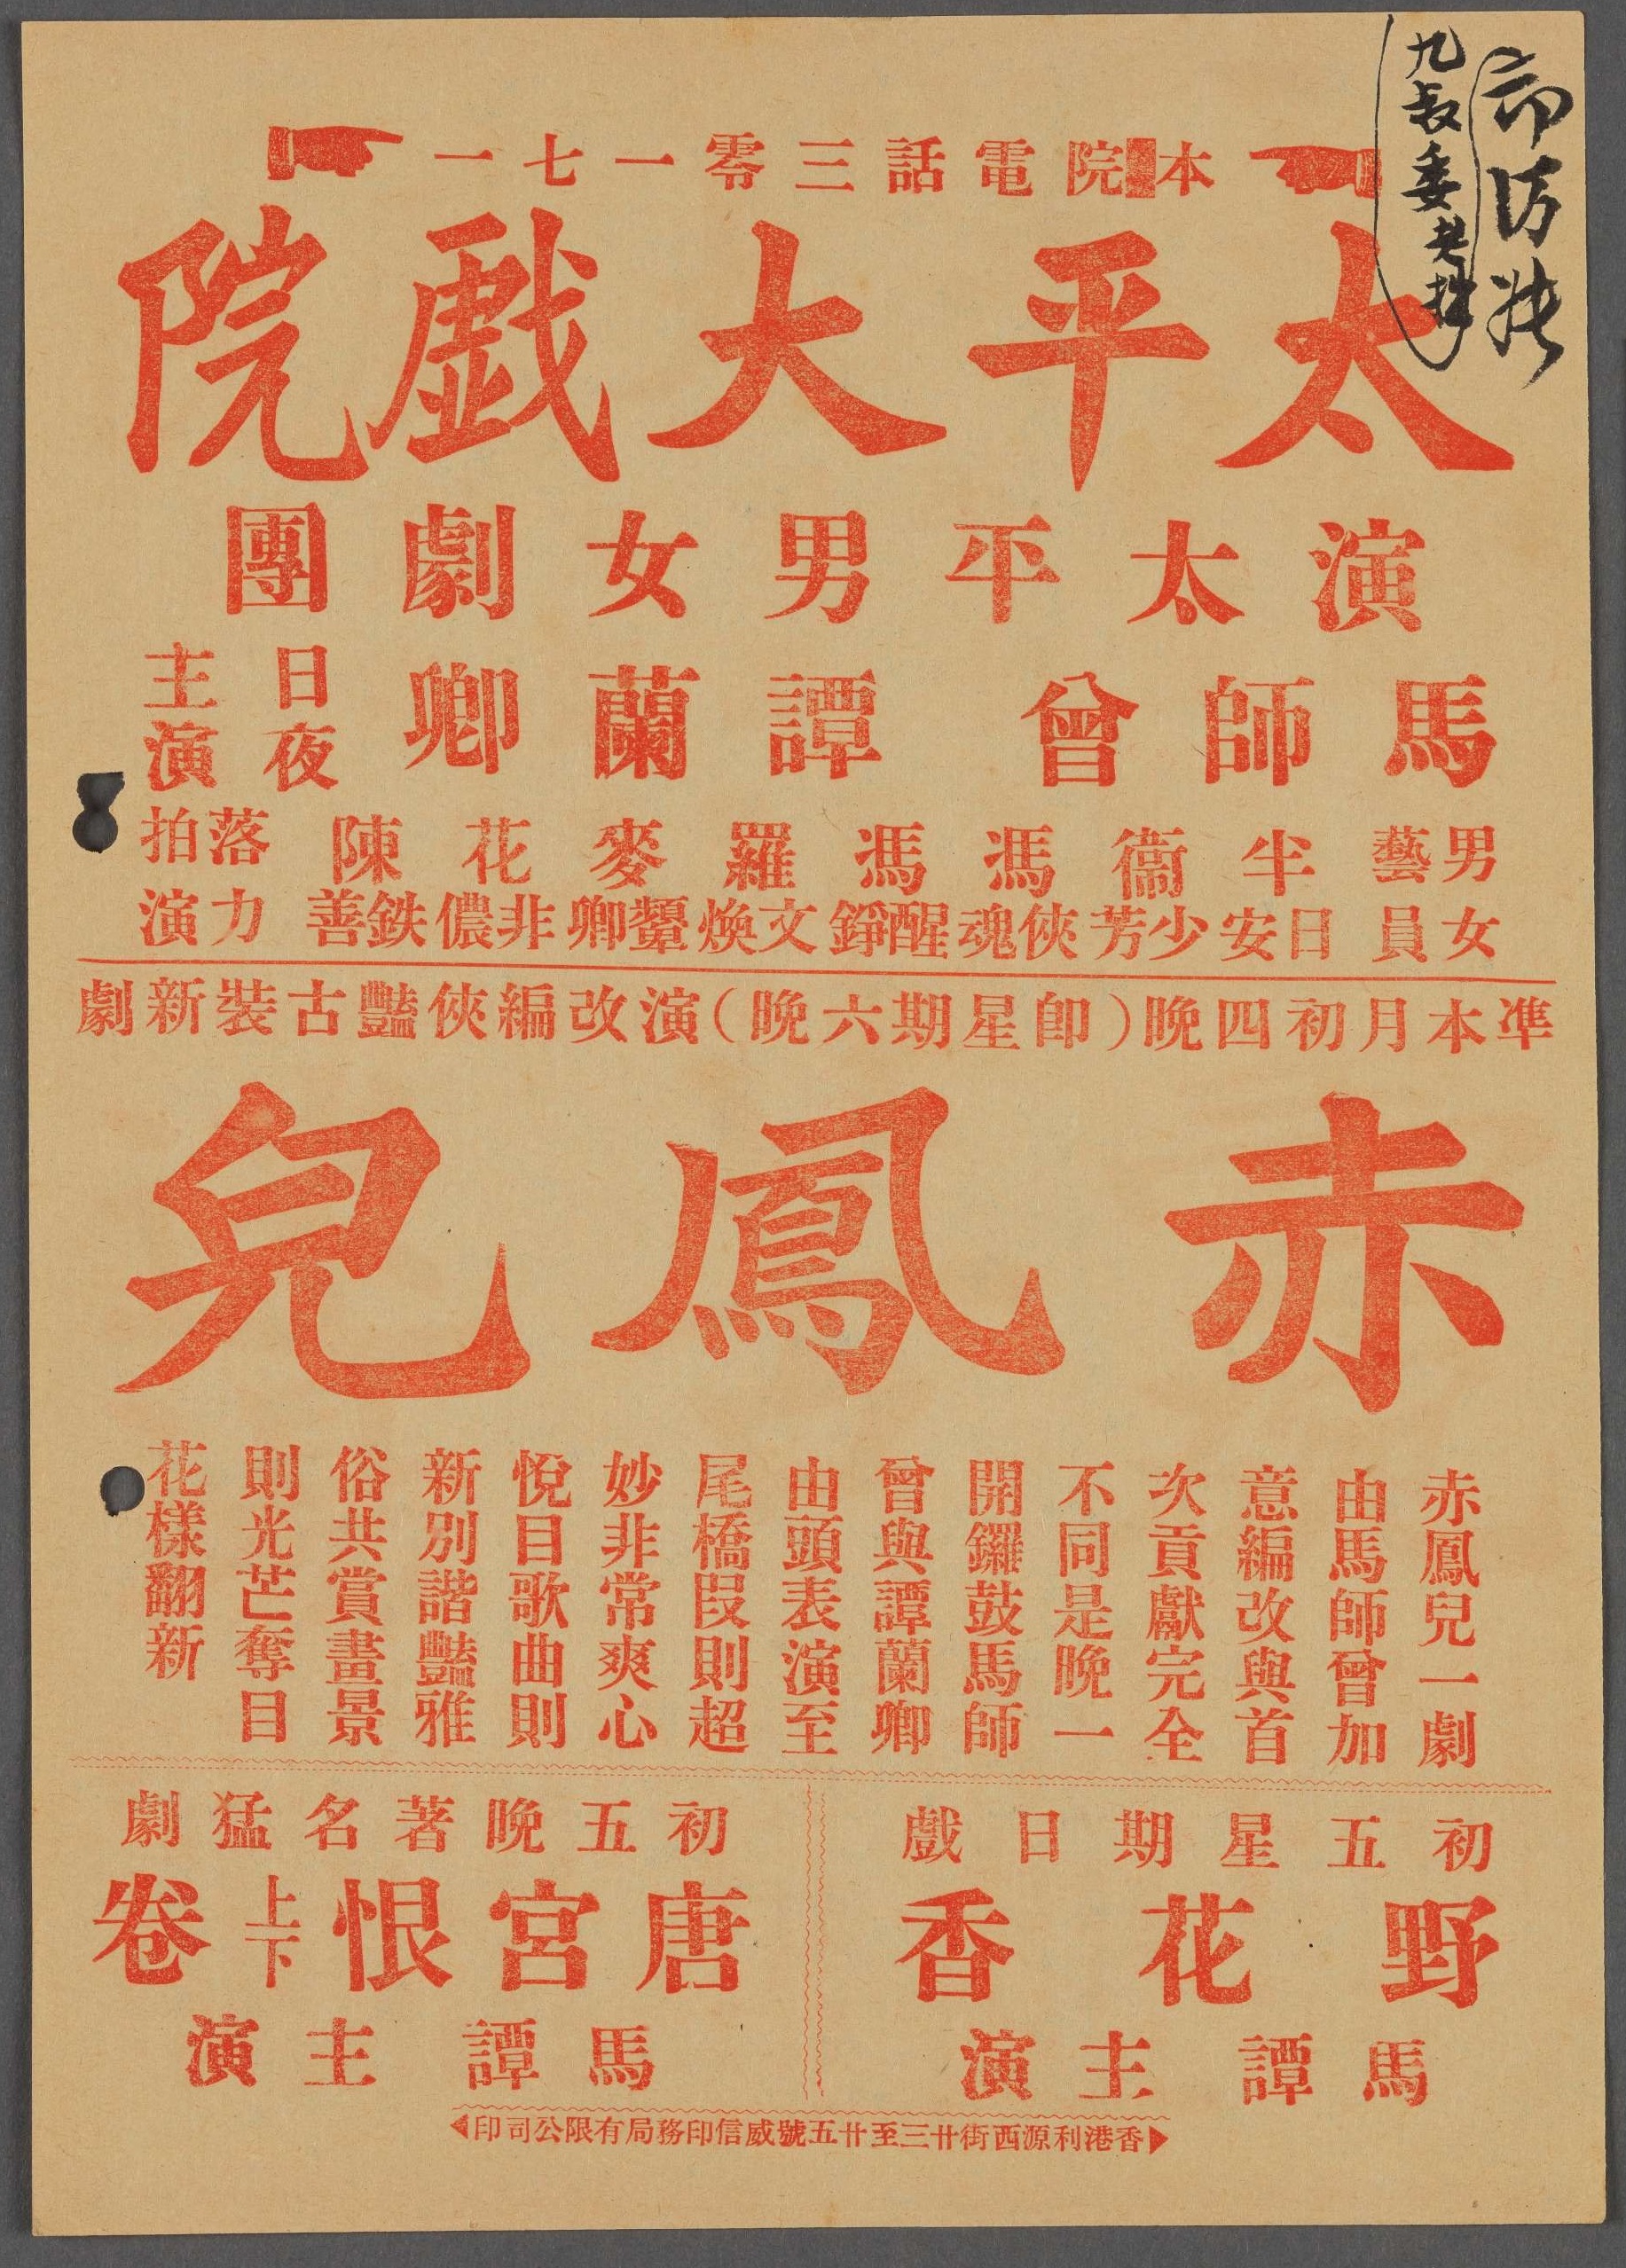 本院電話三零一七一
太平大戲院
演太平男女劇團
馬師曾 譚蘭卿 日夜主演
男女藝員 半日安 衞少芳 馮俠魂 馮醒錚 羅文煥 麥顰卿 花非儂 陳鉄善 落力拍演
凖本月初四晚(卽星期六晚)演改編俠豔古裝新劇
赤鳳兒
赤鳳兒一劇
由馬師曾加
意編改與首
次貢獻完全
不同是晚一
開鑼鼓馬師
曾與譚蘭卿
由頭表演至
尾橋段則超
妙非常爽心
悅目歌曲則
新別諧豔雅
俗共賞畫景
則光芒奪目
花樣翻新
初五星期日戲
野花香
馬譚主演
初五晚著名猛劇
唐宮恨上下卷
馬譚主演
香港利源西街卅三至卅五號威信印務局有限公司印